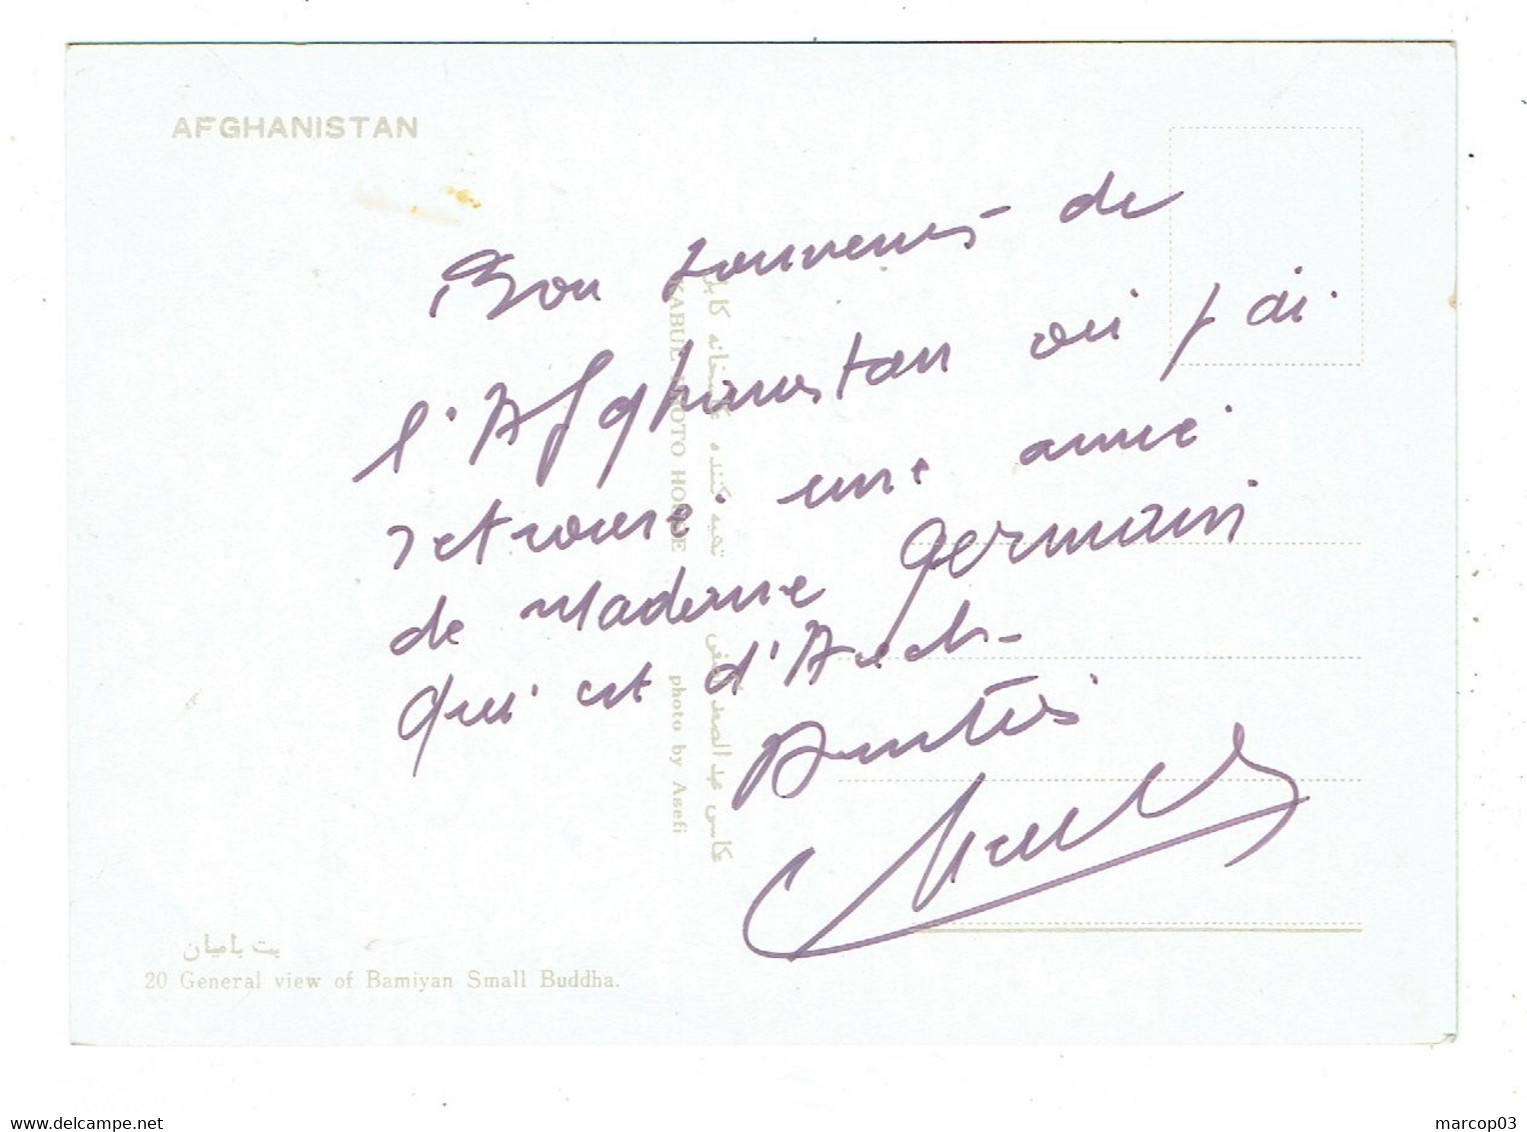 AFGHANISTAN
Bon souvenir de
l'Afghanistan où j'ai
retrouvé une amie
de Madame Germain
qui est d'Auch.
Amitiés
بت بامیان
20 General view of Bamiyan Small Buddha.
KABUL PHOTO HOUSE photo by Asefi
marcop03